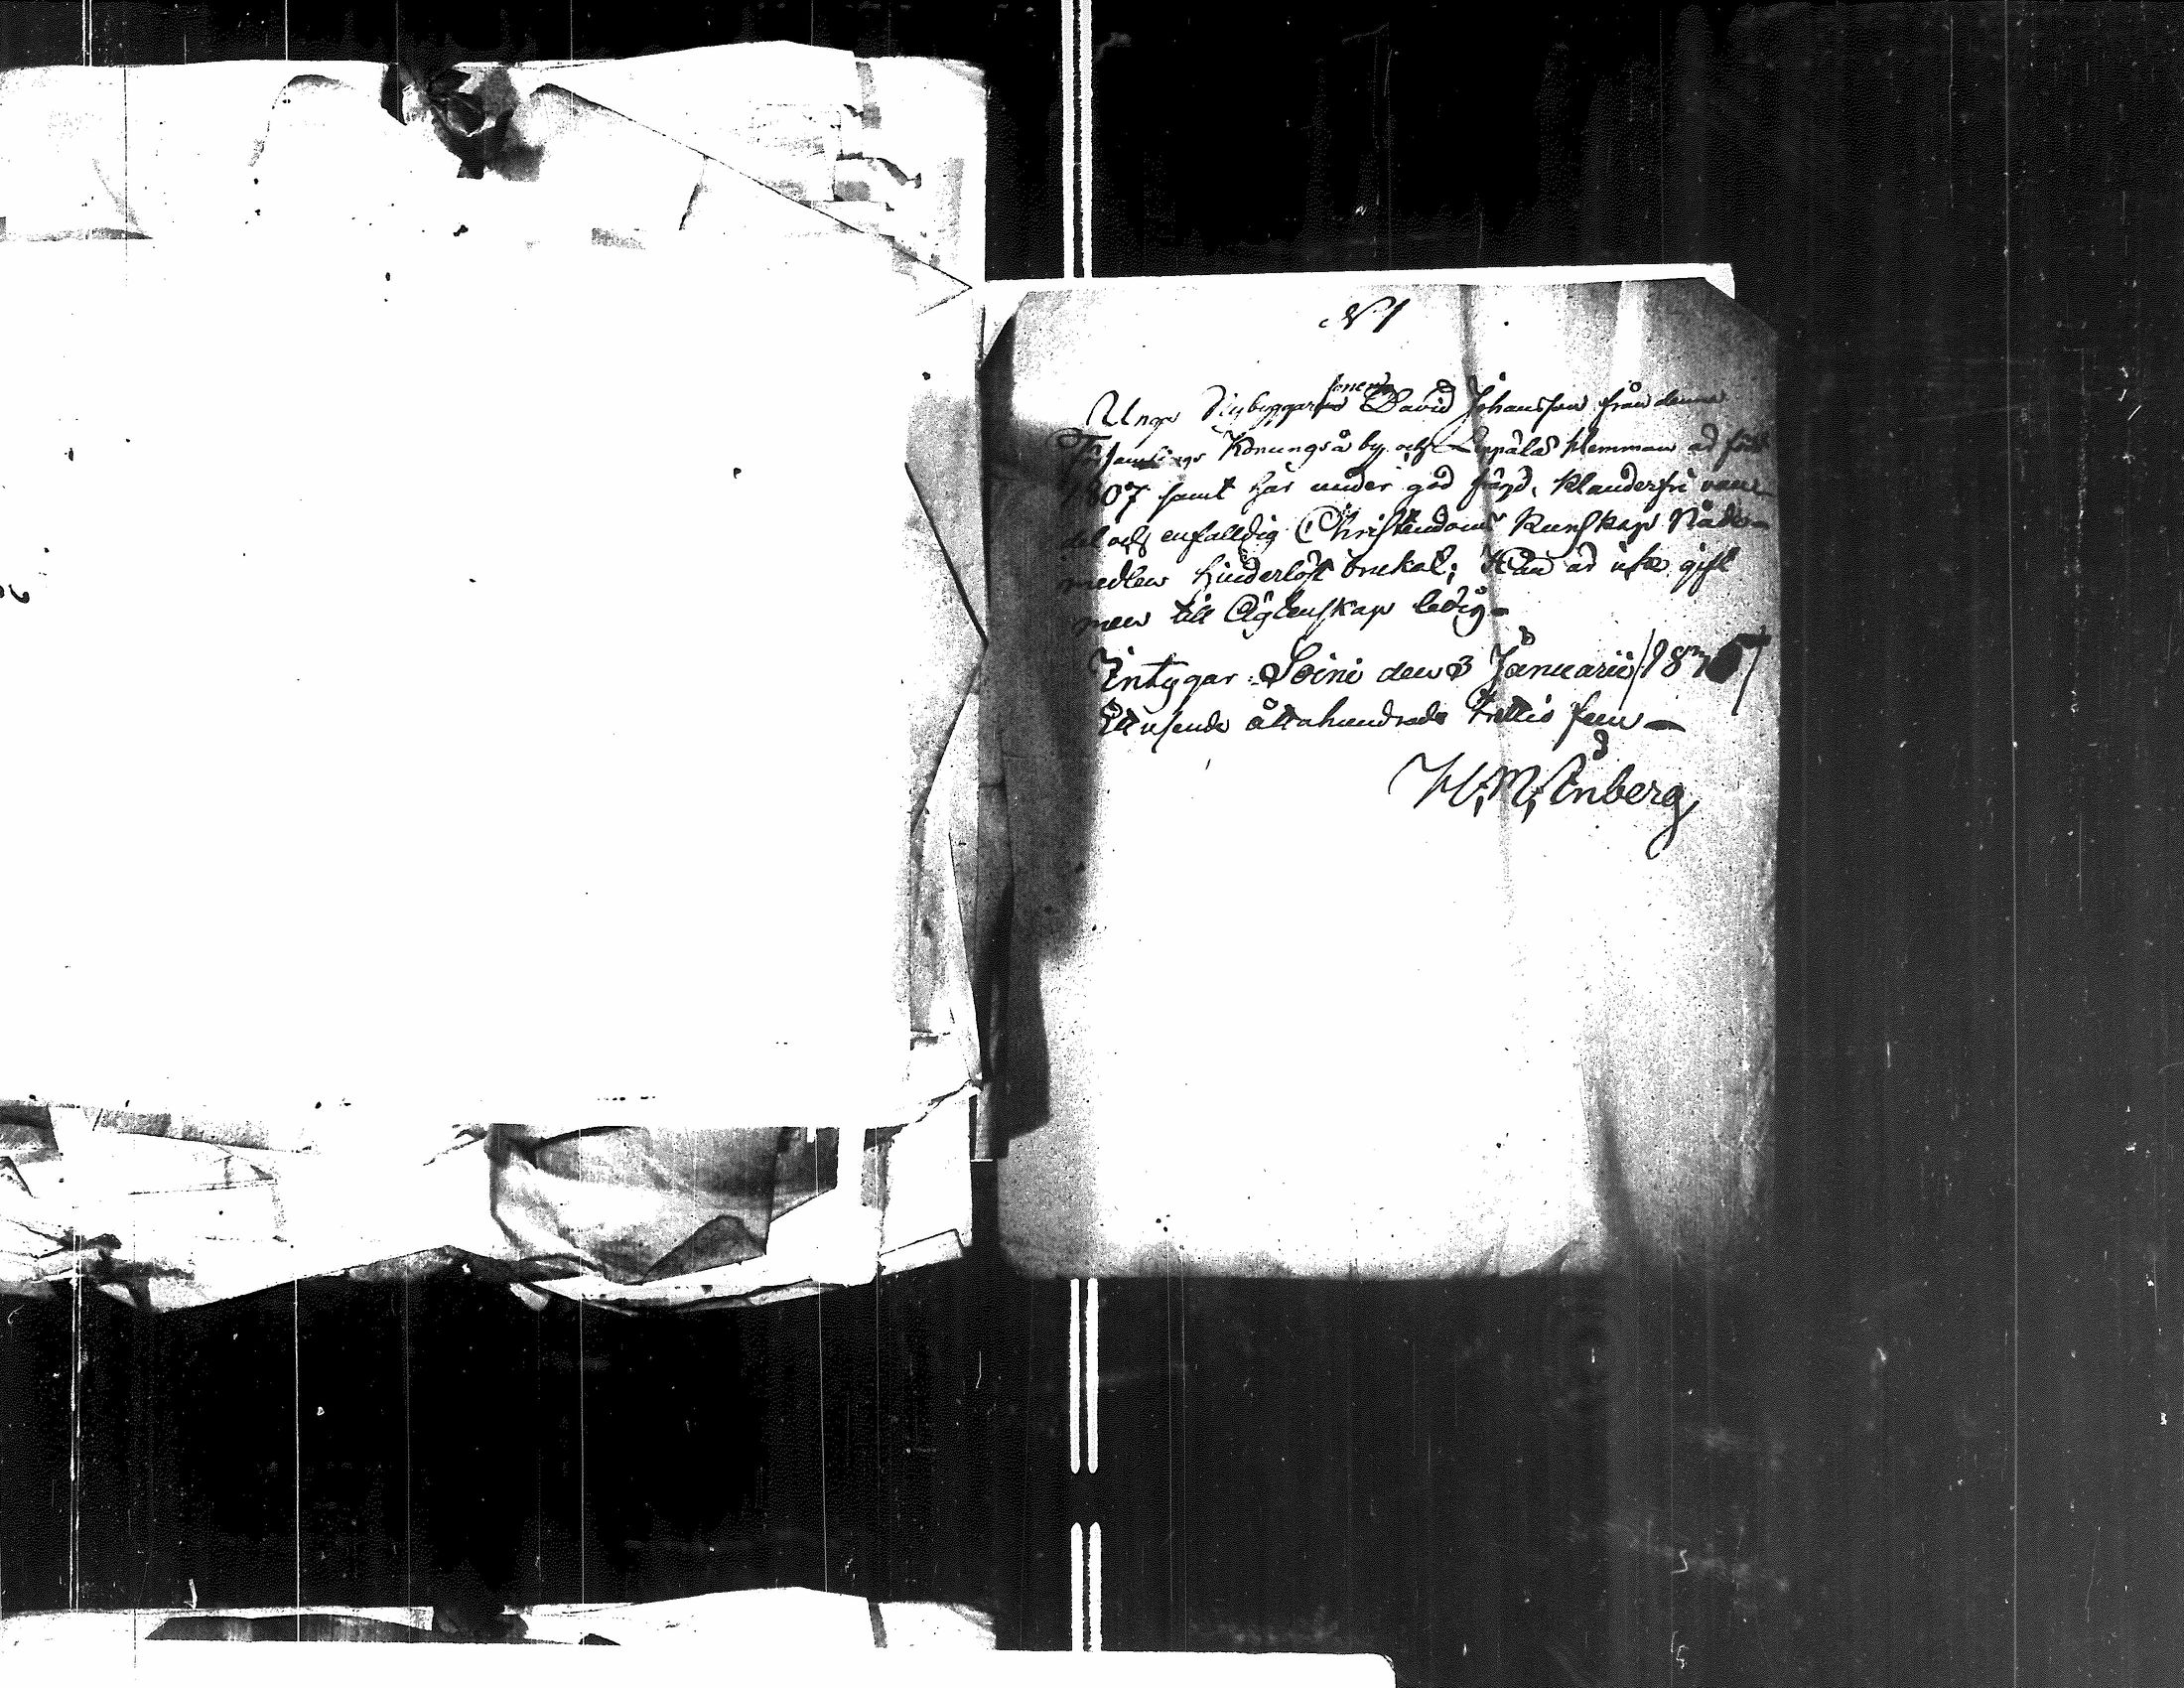 N 1
sonen
Unge Nybyggare David Johansson från denna
Församlings Konungså by och Leppälä Hemman är född
1807 samt har under god frägd, klanderfri van-
del och enfalldig Christendoms Kunskap Nåde-
medlen hinderlöst brukat; Han är icke gift
men till Ägtenskap ledig-
Intygar Soini den 3 Januarii 1835
Ettusende åttahundrade trettio fem -
H. M. Enberg